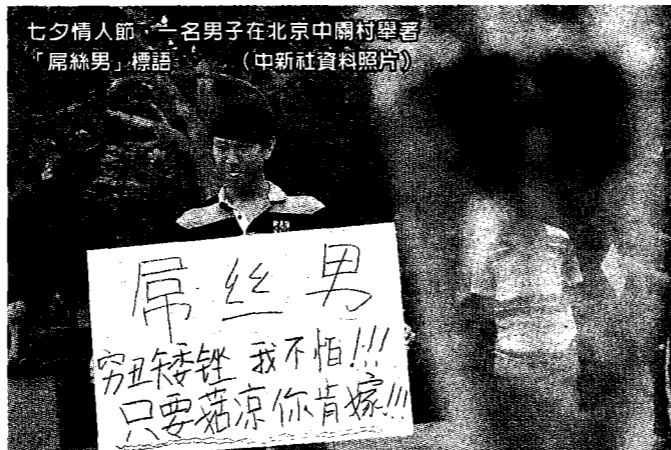 七夕情人節，一名男子在北京中關村舉著
「屌絲男」標語　　（中新社資料照片）
屌丝男
穷丑矮锉 我不怕!!!
只要菇凉你肯嫁!!!